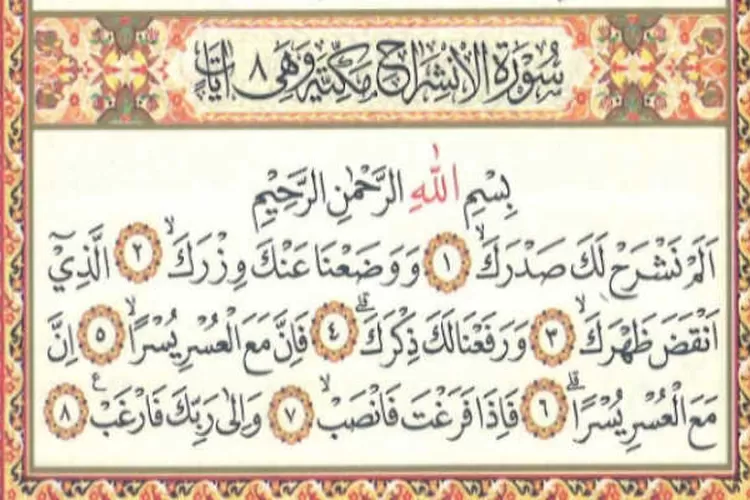 سُوْرَةُ الْاِنْشِرَاحِ مَكِّيَّةٌ وَهِيَ ٨ اٰيَاتٍ
بِسْمِ اللّٰهِ الرَّحْمٰنِ الرَّحِيْمِ
اَلَمْ نَشْرَحْ لَكَ صَدْرَكَۙ ١ وَوَضَعْنَا عَنْكَ وِزْرَكَۙ ٢ الَّذِيْٓ
اَنْقَضَ ظَهْرَكَۙ ٣ وَرَفَعْنَا لَكَ ذِكْرَكَۗ ٤ فَاِنَّ مَعَ الْعُسْرِ يُسْرًاۙ ٥ اِنَّ
مَعَ الْعُسْرِ يُسْرًاۗ ٦ فَاِذَا فَرَغْتَ فَانْصَبْۙ ٧ وَاِلٰى رَبِّكَ فَارْغَبْ ع ٨